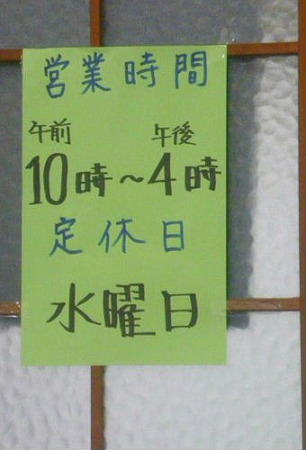 営業時間
午前 午後
10時～4時
定休日
水曜日